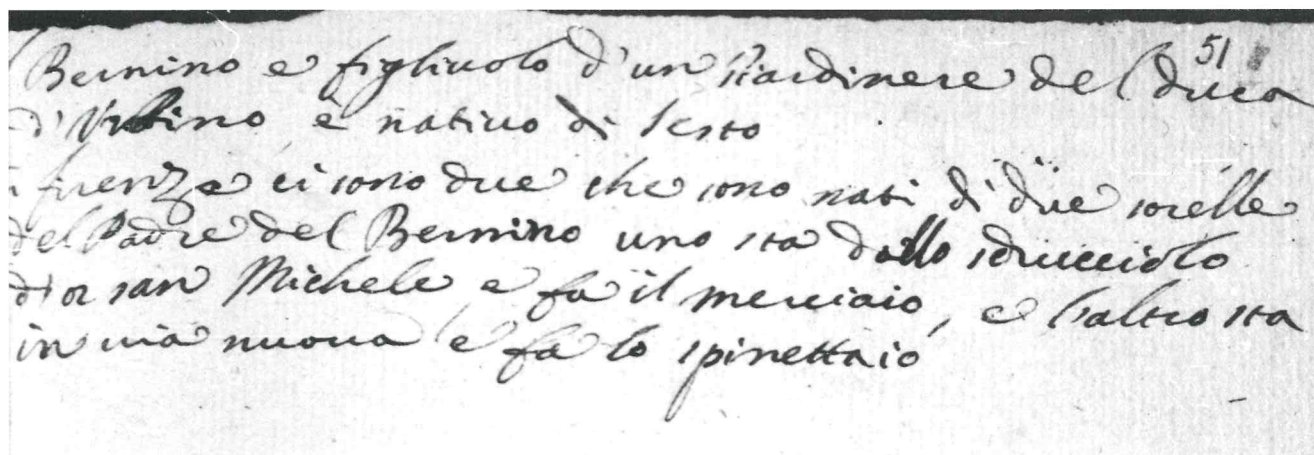 51
Bernino e figliuolo d'un Giardinere del Duca
d'Urbino e nativo di Sesto
firenze ci sono due che sono nati di due sorelle
del Padre del Bernino uno sta dallo sdrucciolo
d'or san Michele e fa il merciaio, e l'altro sta
in via nuova e fa lo spinettaio